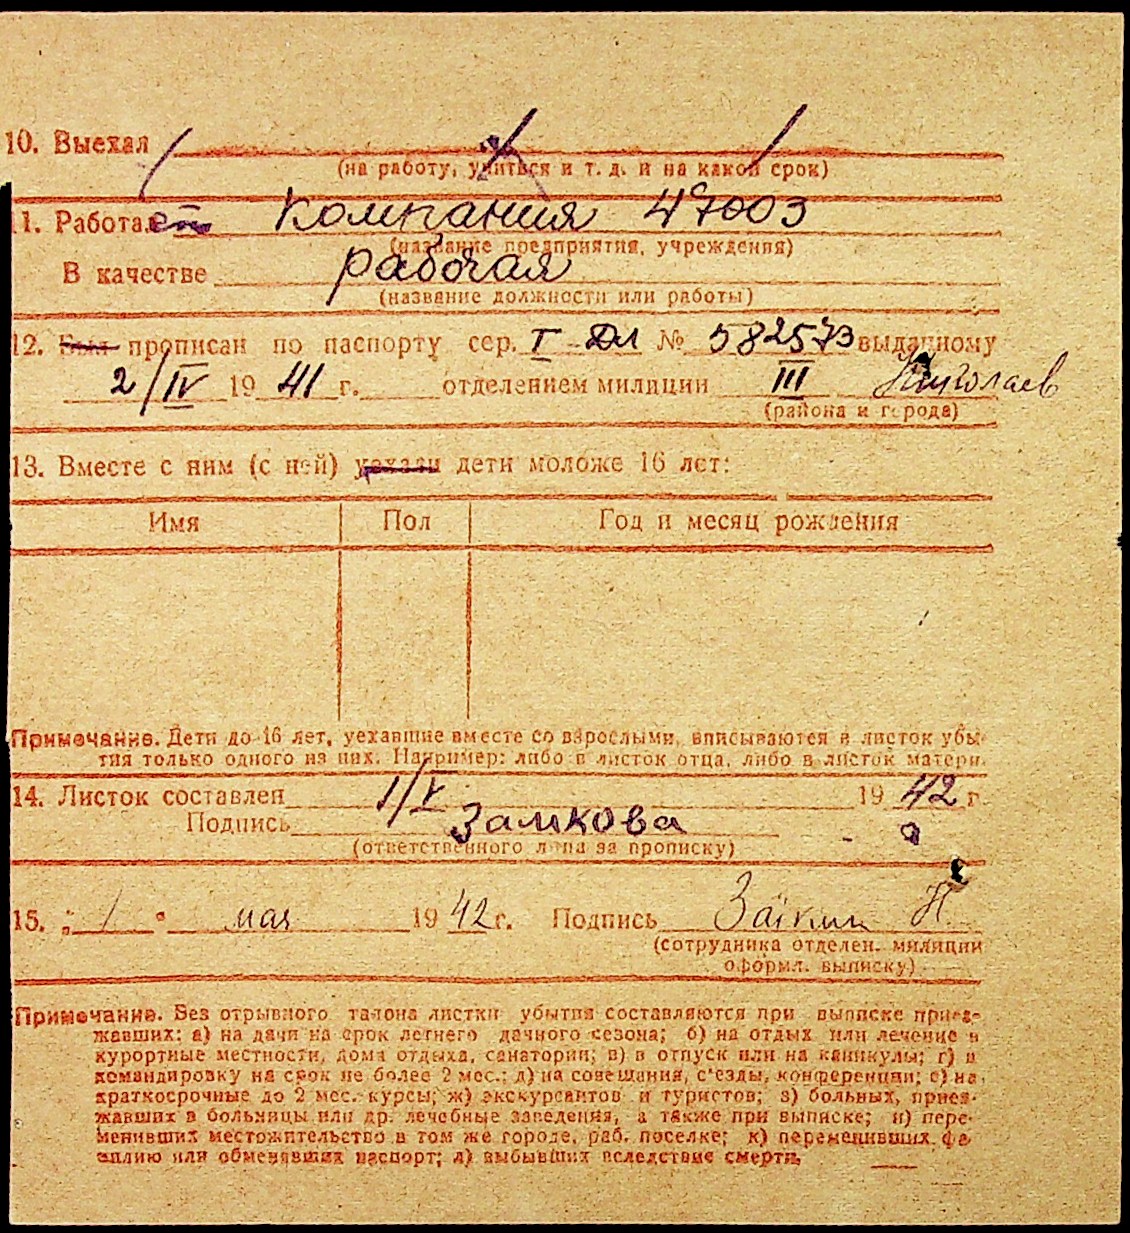 10. Выехал
(на работу, учиться и т. д. и на какой срок)
11. Работает Компания 47003
(название предприятия, учреждения)
В качестве рабочая
(название должности или работы)
12. Был прописан по паспорту сер. I-Дл № 582573 выданному
2/IV 1941 г. отделением милиции III Николаев
(района и города)
13. Вместе с ним (с ней) уехали дети моложе 16 лет:
Имя Пол Год и месяц рождения
Примечание. Дети до 16 лет, уехавшие вместе со взрослыми, вписываются в листок убы-
тия только одного из них. Например: либо в листок отца, либо в листок матери.
14. Листок составлен 1/V 1942 г.
Подпись Замкова
(ответственного лица за прописку)
15. „ 1 " мая 1942 г. Подпись
(сотрудника отделен. милиции
оформл. выписку)
Примечание. Без отрывного талона листки убытия составляются при выписке приез-
жавших: а) на дачи на срок летнего дачного сезона; б) на отдых или лечение в
курортные местности, дома отдыха, санатории; в) в отпуск или на каникулы; г) в
командировку на срок не более 2 мес.; д) на совещания, с'езды, конференции; е) на
краткосрочные до 2 мес. курсы; ж) экскурсантов и туристов; з) больных, приез-
жавших в больницы или др. лечебные заведения, а также при выписке; и) пере-
менивших местожительство в том же городе, раб. поселке; к) переменивших фа-
милию или обменявших паспорт; л) выбывших вследствие смерти.